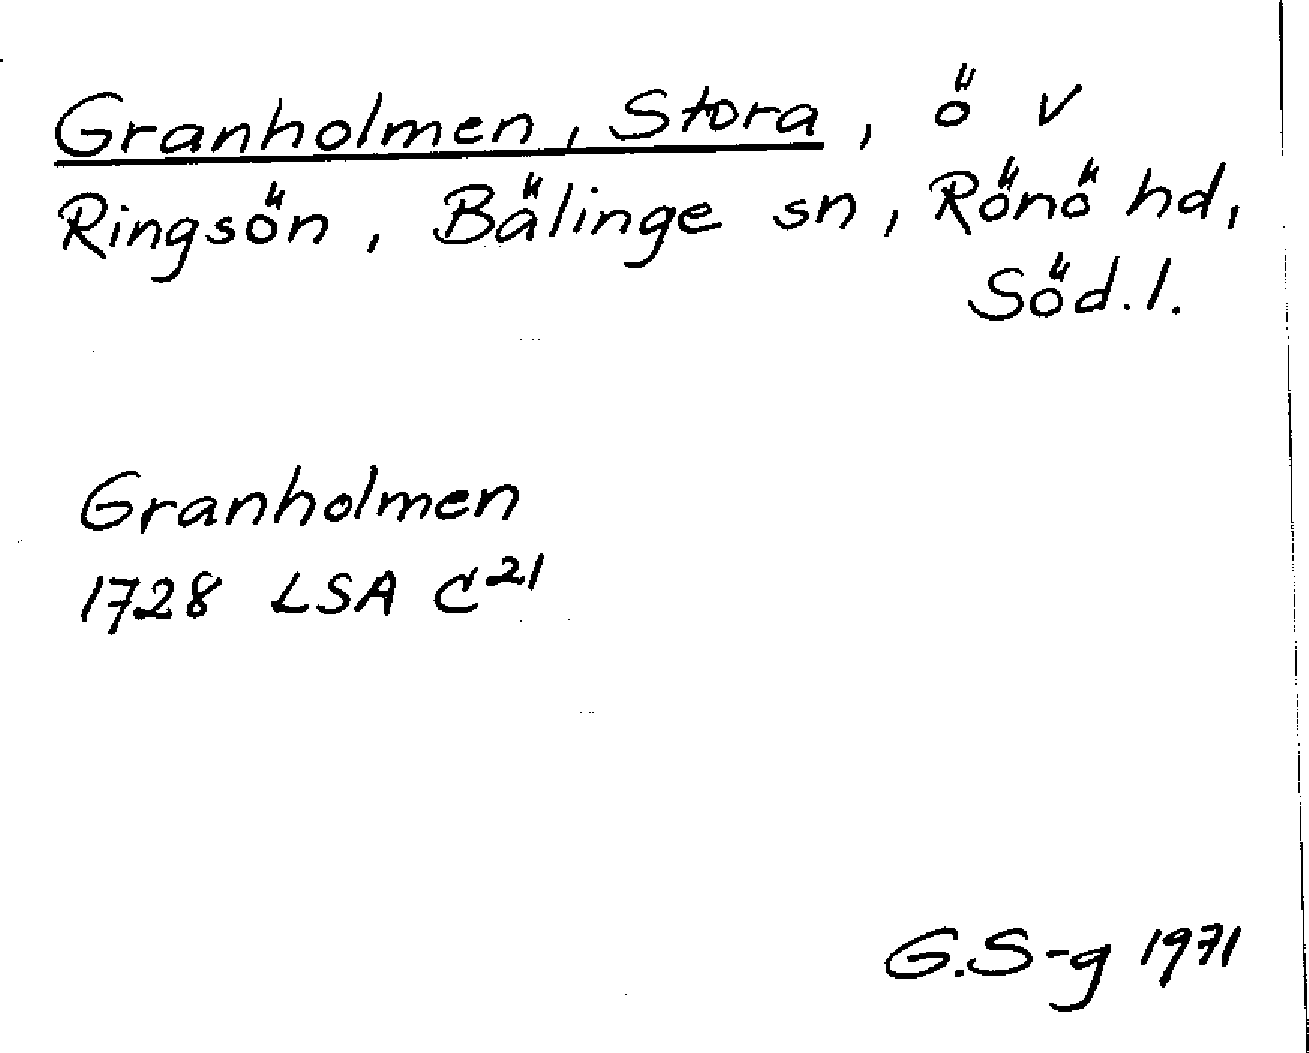 Granholmen, Stora, ö V
Ringsön, Bälinge sn, Rönö hd,
Söd.l.
Granholmen
1728 LSA C²¹
G.S-g 1971